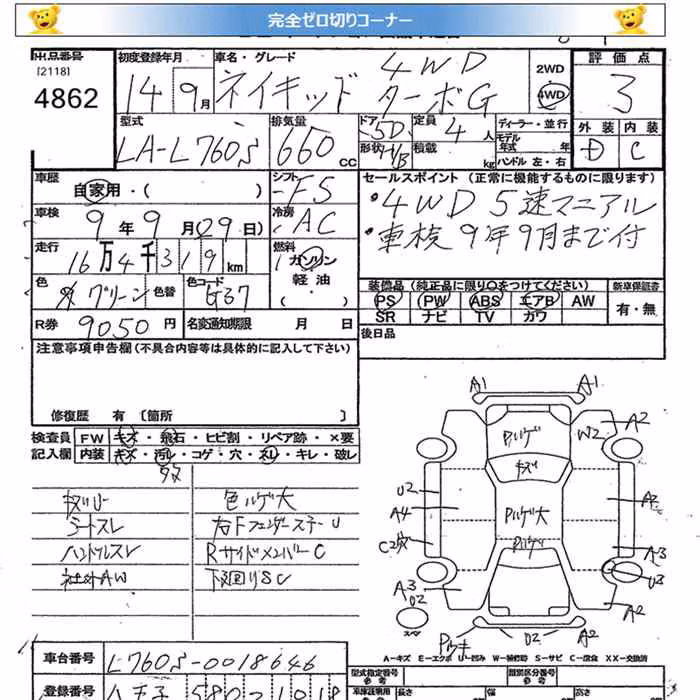 完全ゼロ切りコーナー
出品番号 初度登録年月 車名・グレード 評価点
[2118] 4862 14 9月 ネイキッド 4WD ターボG 2WD 4WD 3
型式 排気量 ドア 定員 ディーラー・並行 外装 内装
LA-L760S 660 CC 5D 形状 H/B 4人 積載 kg モデル年式 年 ハンドル 左・右 D C
車歴 シフト セールスポイント (正常に機能するものに限ります)
自家用・( ) F5 ・4WD 5速マニアル
車検 9年9月(29日) 冷房 AC ・車検9年9月まで付
走行 16万4千319km 燃料 ガソリン 軽油 ( )
色 グリーン 色替 色コード G37
装備品 (純正品に限り○をつけてください) 新車保証書
PS PW ABS エアB AW 有・無
SR ナビ TV カワ
R券 9050円 名変通知期限 月 日 後日品
注意事項申告欄(不具合内容等は具体的に記入して下さい)
修復歴 有 [箇所 ]
検査員 FW キズ・飛石・ヒビ割・リペア跡・×要
記入欄 内装 キズ・汚レ・コゲ・穴・スレ・キレ・破レ
色ハゲ大
シートスレ 右Fフェンダーステー U
ハンドルスレ RサイドメンバーC
社外AW 下廻りSC
A1 A1
A2
ハゲ W2
キズ
U2
A4 ハゲ大 A2
C2
A3 A3
U2 U3
スペア
U2 A2
A2
A-キズ E-エクボ U-凹み W-補修跡 S-サビ C-腐食 XX-交換済
車台番号 L760S-0018646
登録番号 八王子 580 1018
型式指定番号 類別区分番号
長さ 幅 高さ